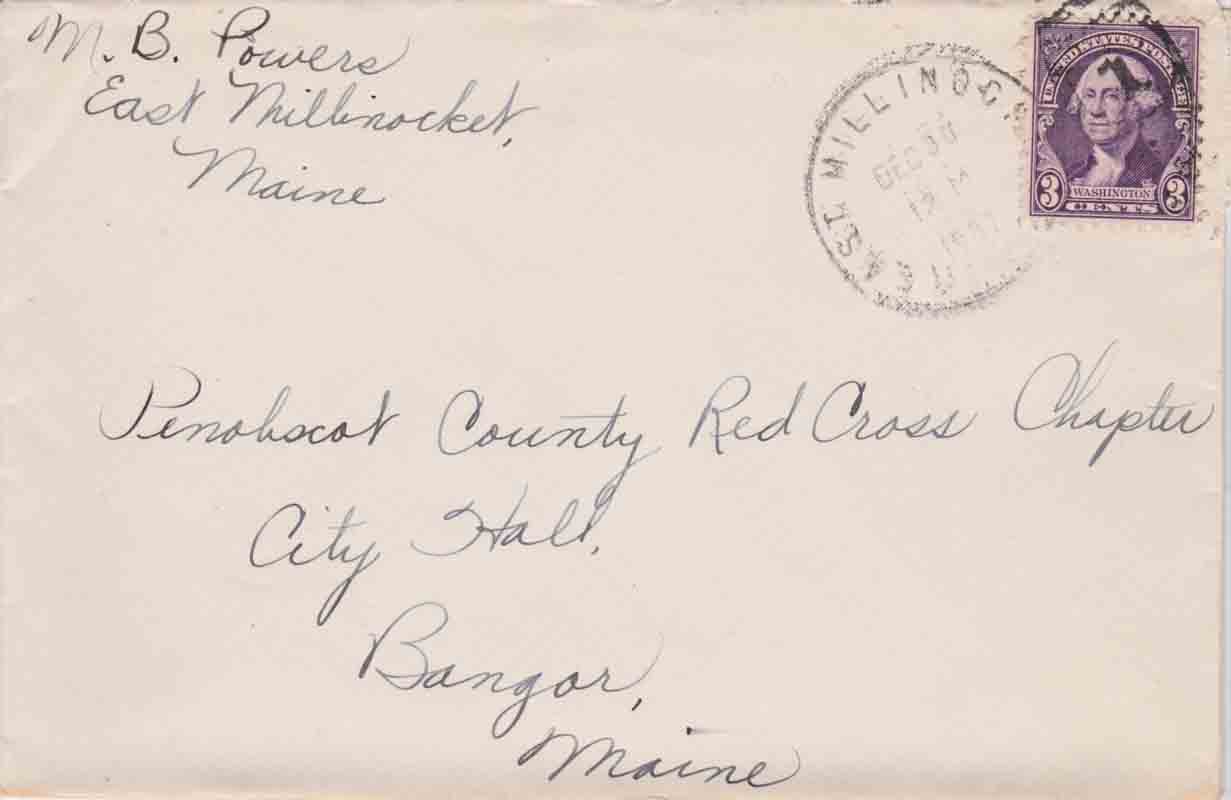 M. B. Powers
East Millinocket,
Maine
EAST MILLINOC
DEC 30
12 M
UNITED STATES POSTAGE
3 WASHINGTON 3
CENTS
Penobscot County Red Cross Chapter
City Hall,
Bangor,
Maine